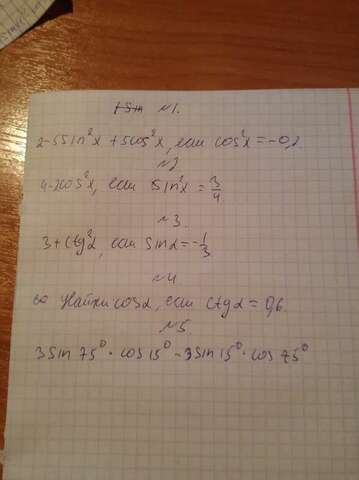 №1.
2-5sin²x+5cos²x, если cos²x=-0,2
№2
4-2cos²x, если sin²x=3/4
№3.
3+ctg²α, если sinα=-1/3
№4
Найти cosα, если ctgα=0,6.
№5.
3sin75°·cos15°-3sin15°·cos75°